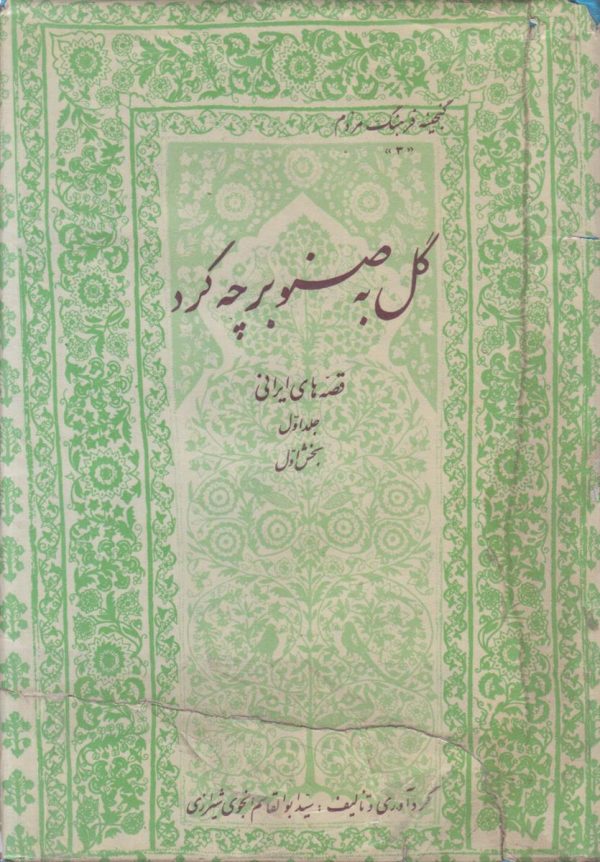 گنجینه فرهنگ مردم
«۳»
گل به صنوبر چه کرد
قصه های ایرانی
جلد اوّل
بخش اوّل
گردآوری و تألیف : سیّد ابوالقاسم انجوی شیرازی